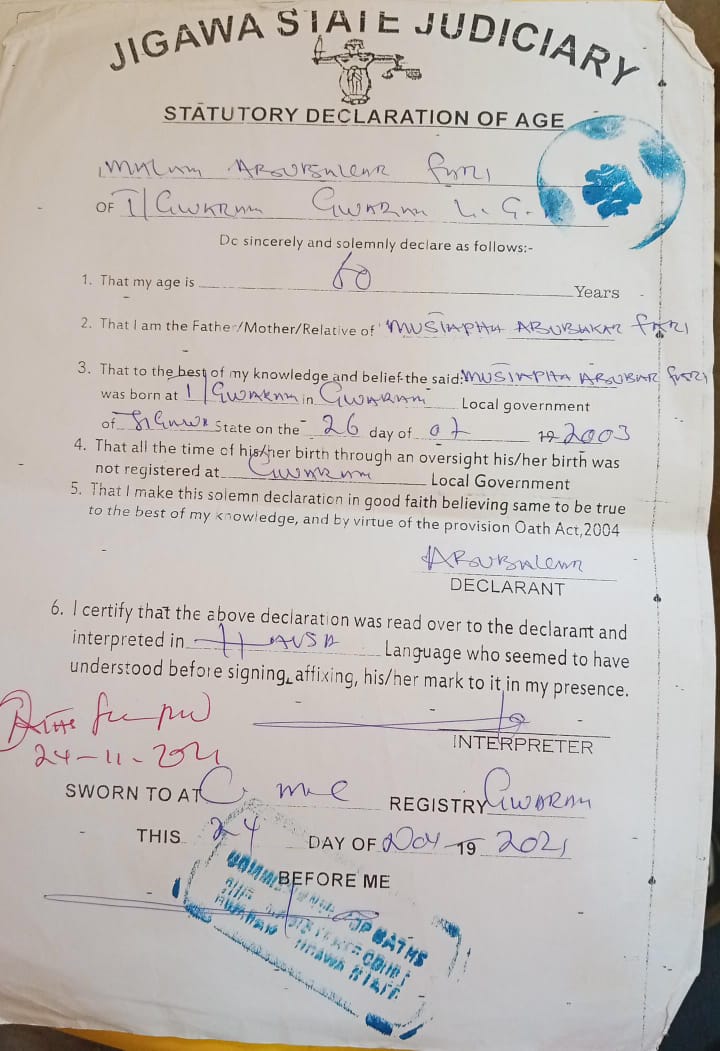 JIGAWA STATE JUDICIARY
STATUTORY DECLARATION OF AGE
I Malam ABUBAKAR FARI
OF T/GWARAM GWARAM L.G.
Do sincerely and solemnly declare as follows:-
1. That my age is 60 Years
2. That I am the Father/Mother/Relative of MUSTAPHA ABUBAKAR FARI
3. That to the best of my knowledge and belief the said: MUSTAPHA ABUBAKAR FARI
was born at T/GWARAM in GWARAM Local government
of JIGAWA State on the 26 day of 07 19 2003
4. That all the time of his/her birth through an oversight his/her birth was
not registered at GWARAM Local Government
5. That I make this solemn declaration in good faith believing same to be true
to the best of my knowledge, and by virtue of the provision Oath Act,2004
ABUBAKAR
DECLARANT
6. I certify that the above declaration was read over to the declarant and
interpreted in HAUSA Language who seemed to have
understood before signing, affixing, his/her mark to it in my presence.
24-11-2021
INTERPRETER
SWORN TO AT C. M. C REGISTRY GWARAM
THIS 24 DAY OF NOV 19 2021
BEFORE ME
COMMISSIONER OF OATHS
COURT
GWARAM JIGAWA STATE